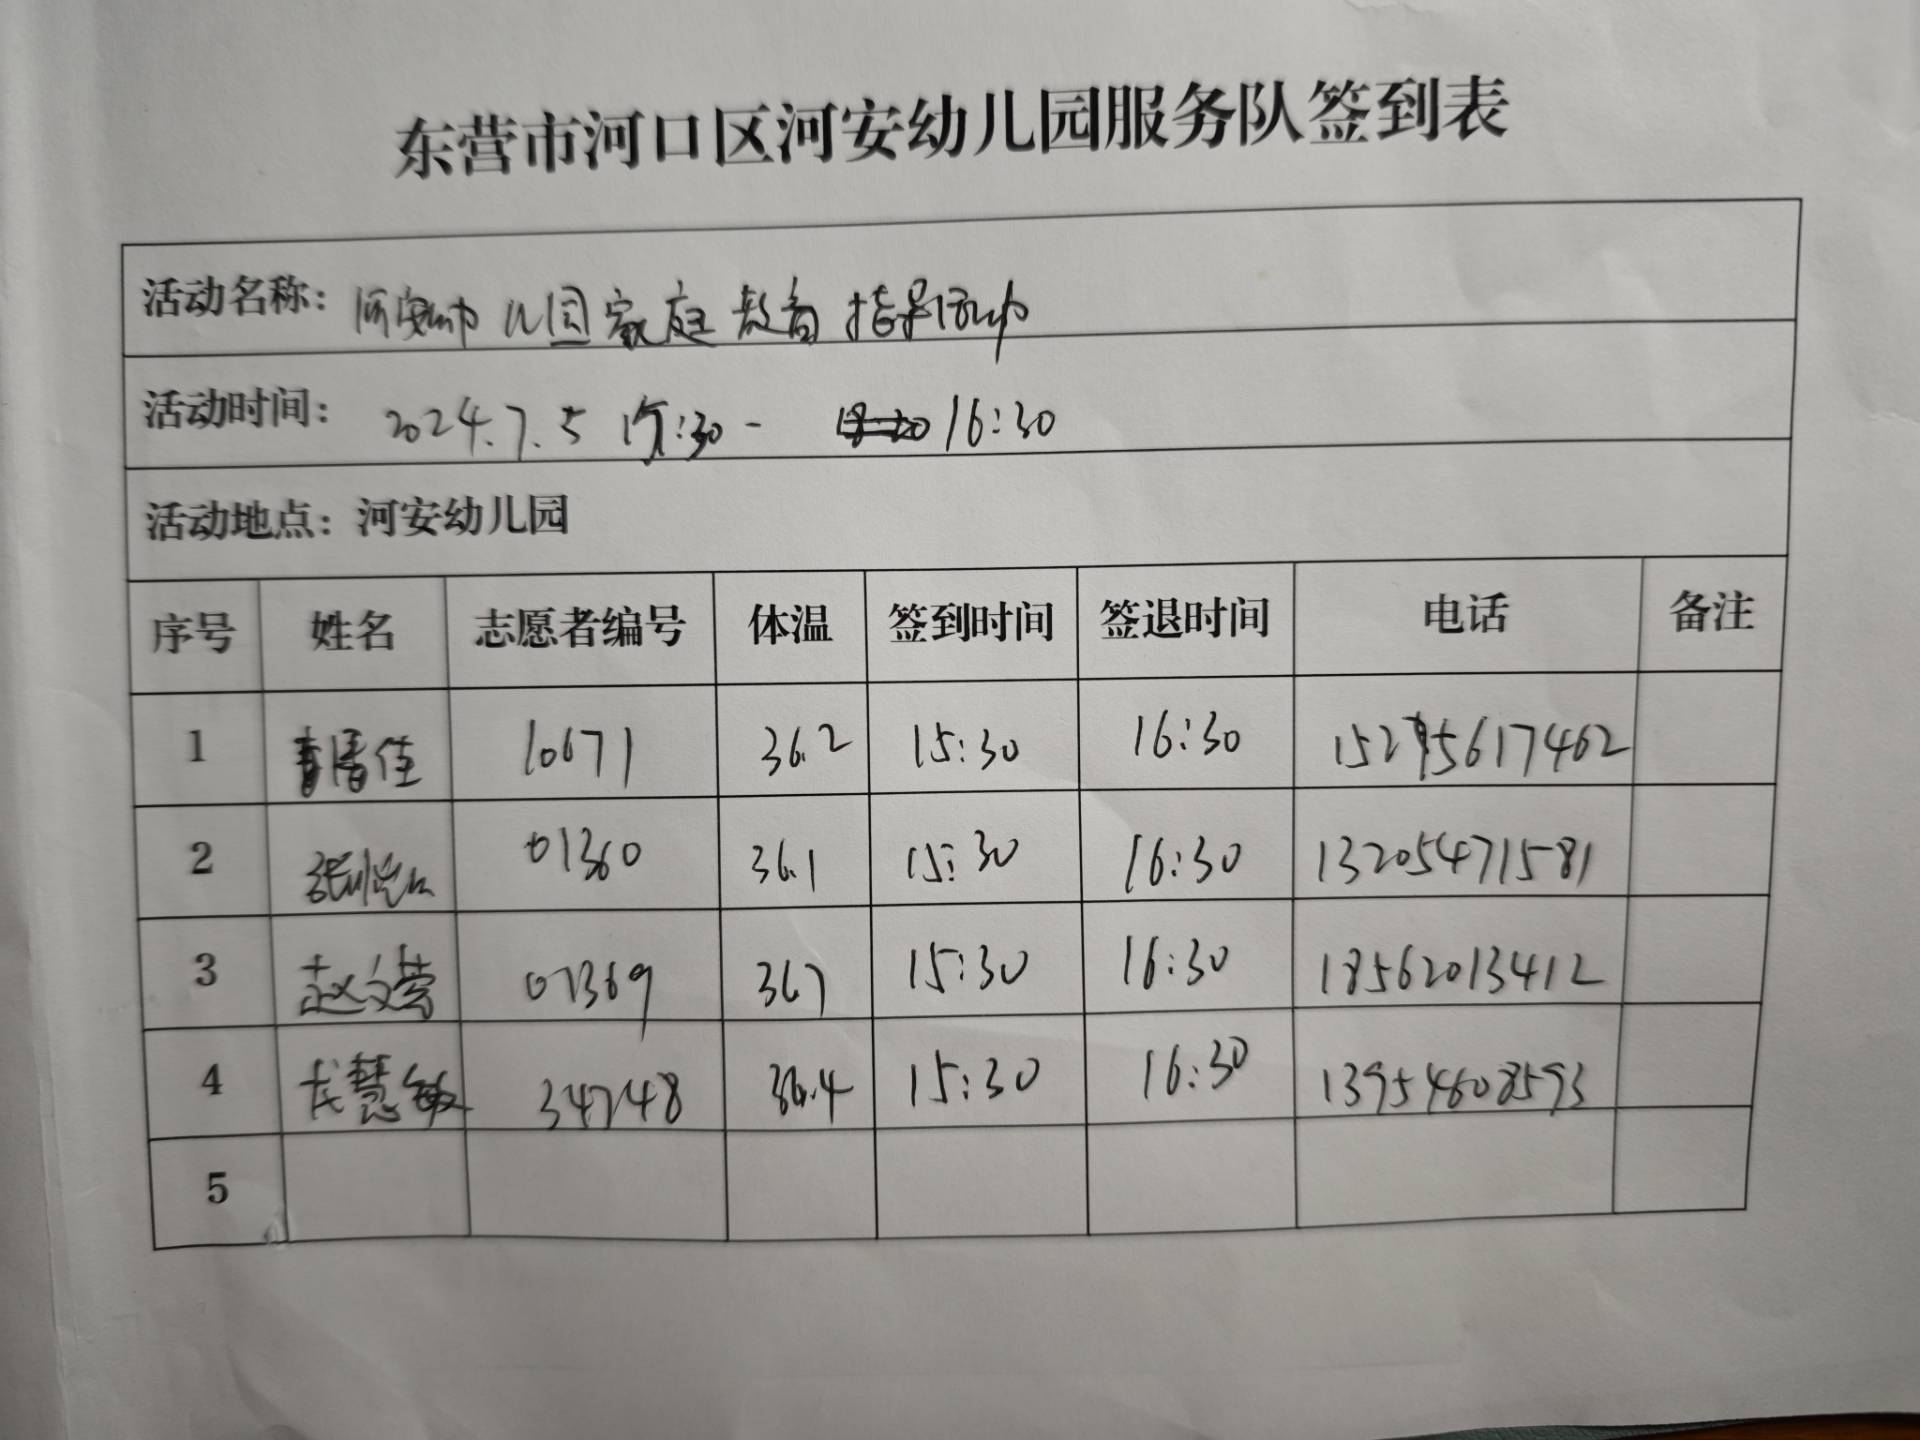 东营市河口区河安幼儿园服务队签到表
活动名称: 河安幼儿园家庭教育指导活动
活动时间: 2024.7.5 15:30 - 16:30
活动地点: 河安幼儿园
序号 姓名 志愿者编号 体温 签到时间 签退时间 电话 备注
1 10671 36.2 15:30 16:30
2 01360 36.1 15:30 16:30 13205471581
3 赵文营 36.7 15:30 16:30 18562013412
4 慧敏 36.4 15:30 16:30 13954608593
5